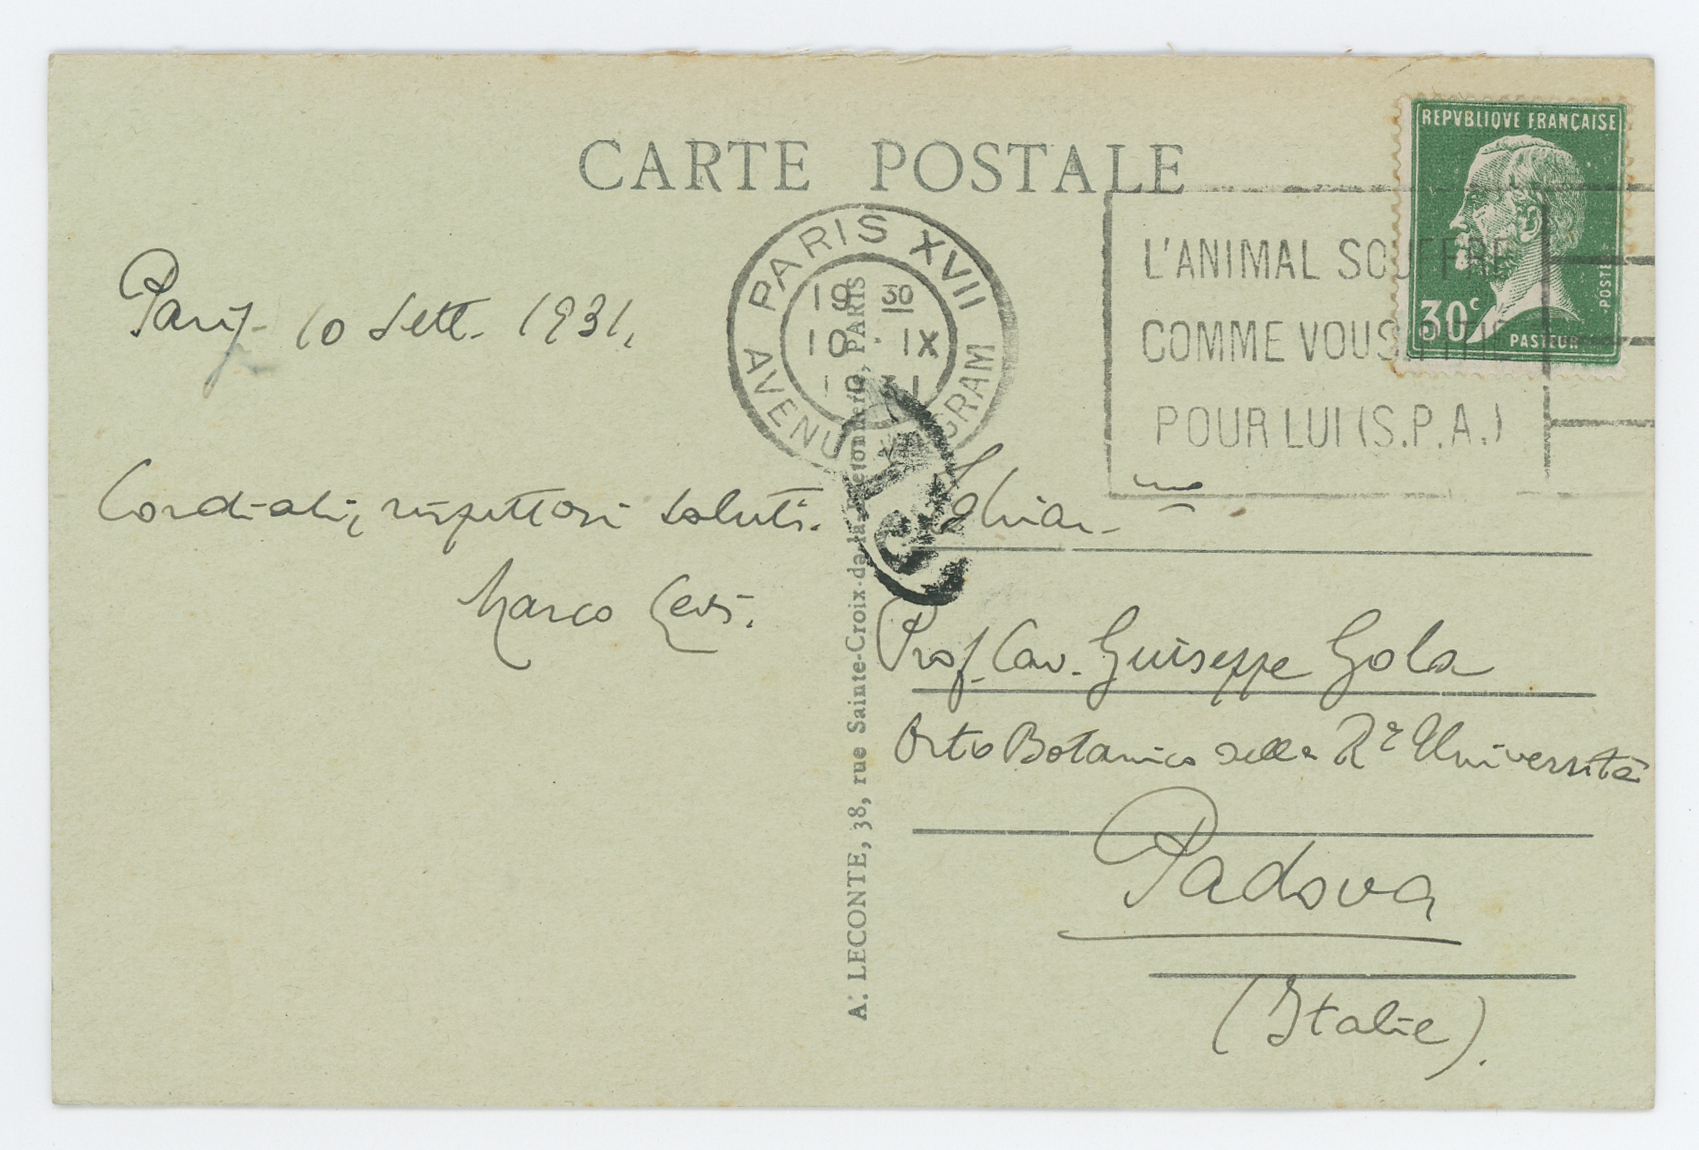 CARTE POSTALE
REPVBLIQVE FRANÇAISE
30c
POSTES
PASTEUR
PARIS XVII
AVENUE WAGRAM
19 30
10 · IX
31
L'ANIMAL SOUFFRE
COMME VOUS
POUR LUI (S.P.A.)
10 Sett. 1931.
Cordiali, rispettosi saluti.
Marco
Prof. Cav. Guiseppe Gola
Orto Botanico della Rª Università
Padova
(Italie).
A. LECONTE, 38, rue Sainte-Croix-de-la-Bretonnerie, PARIS